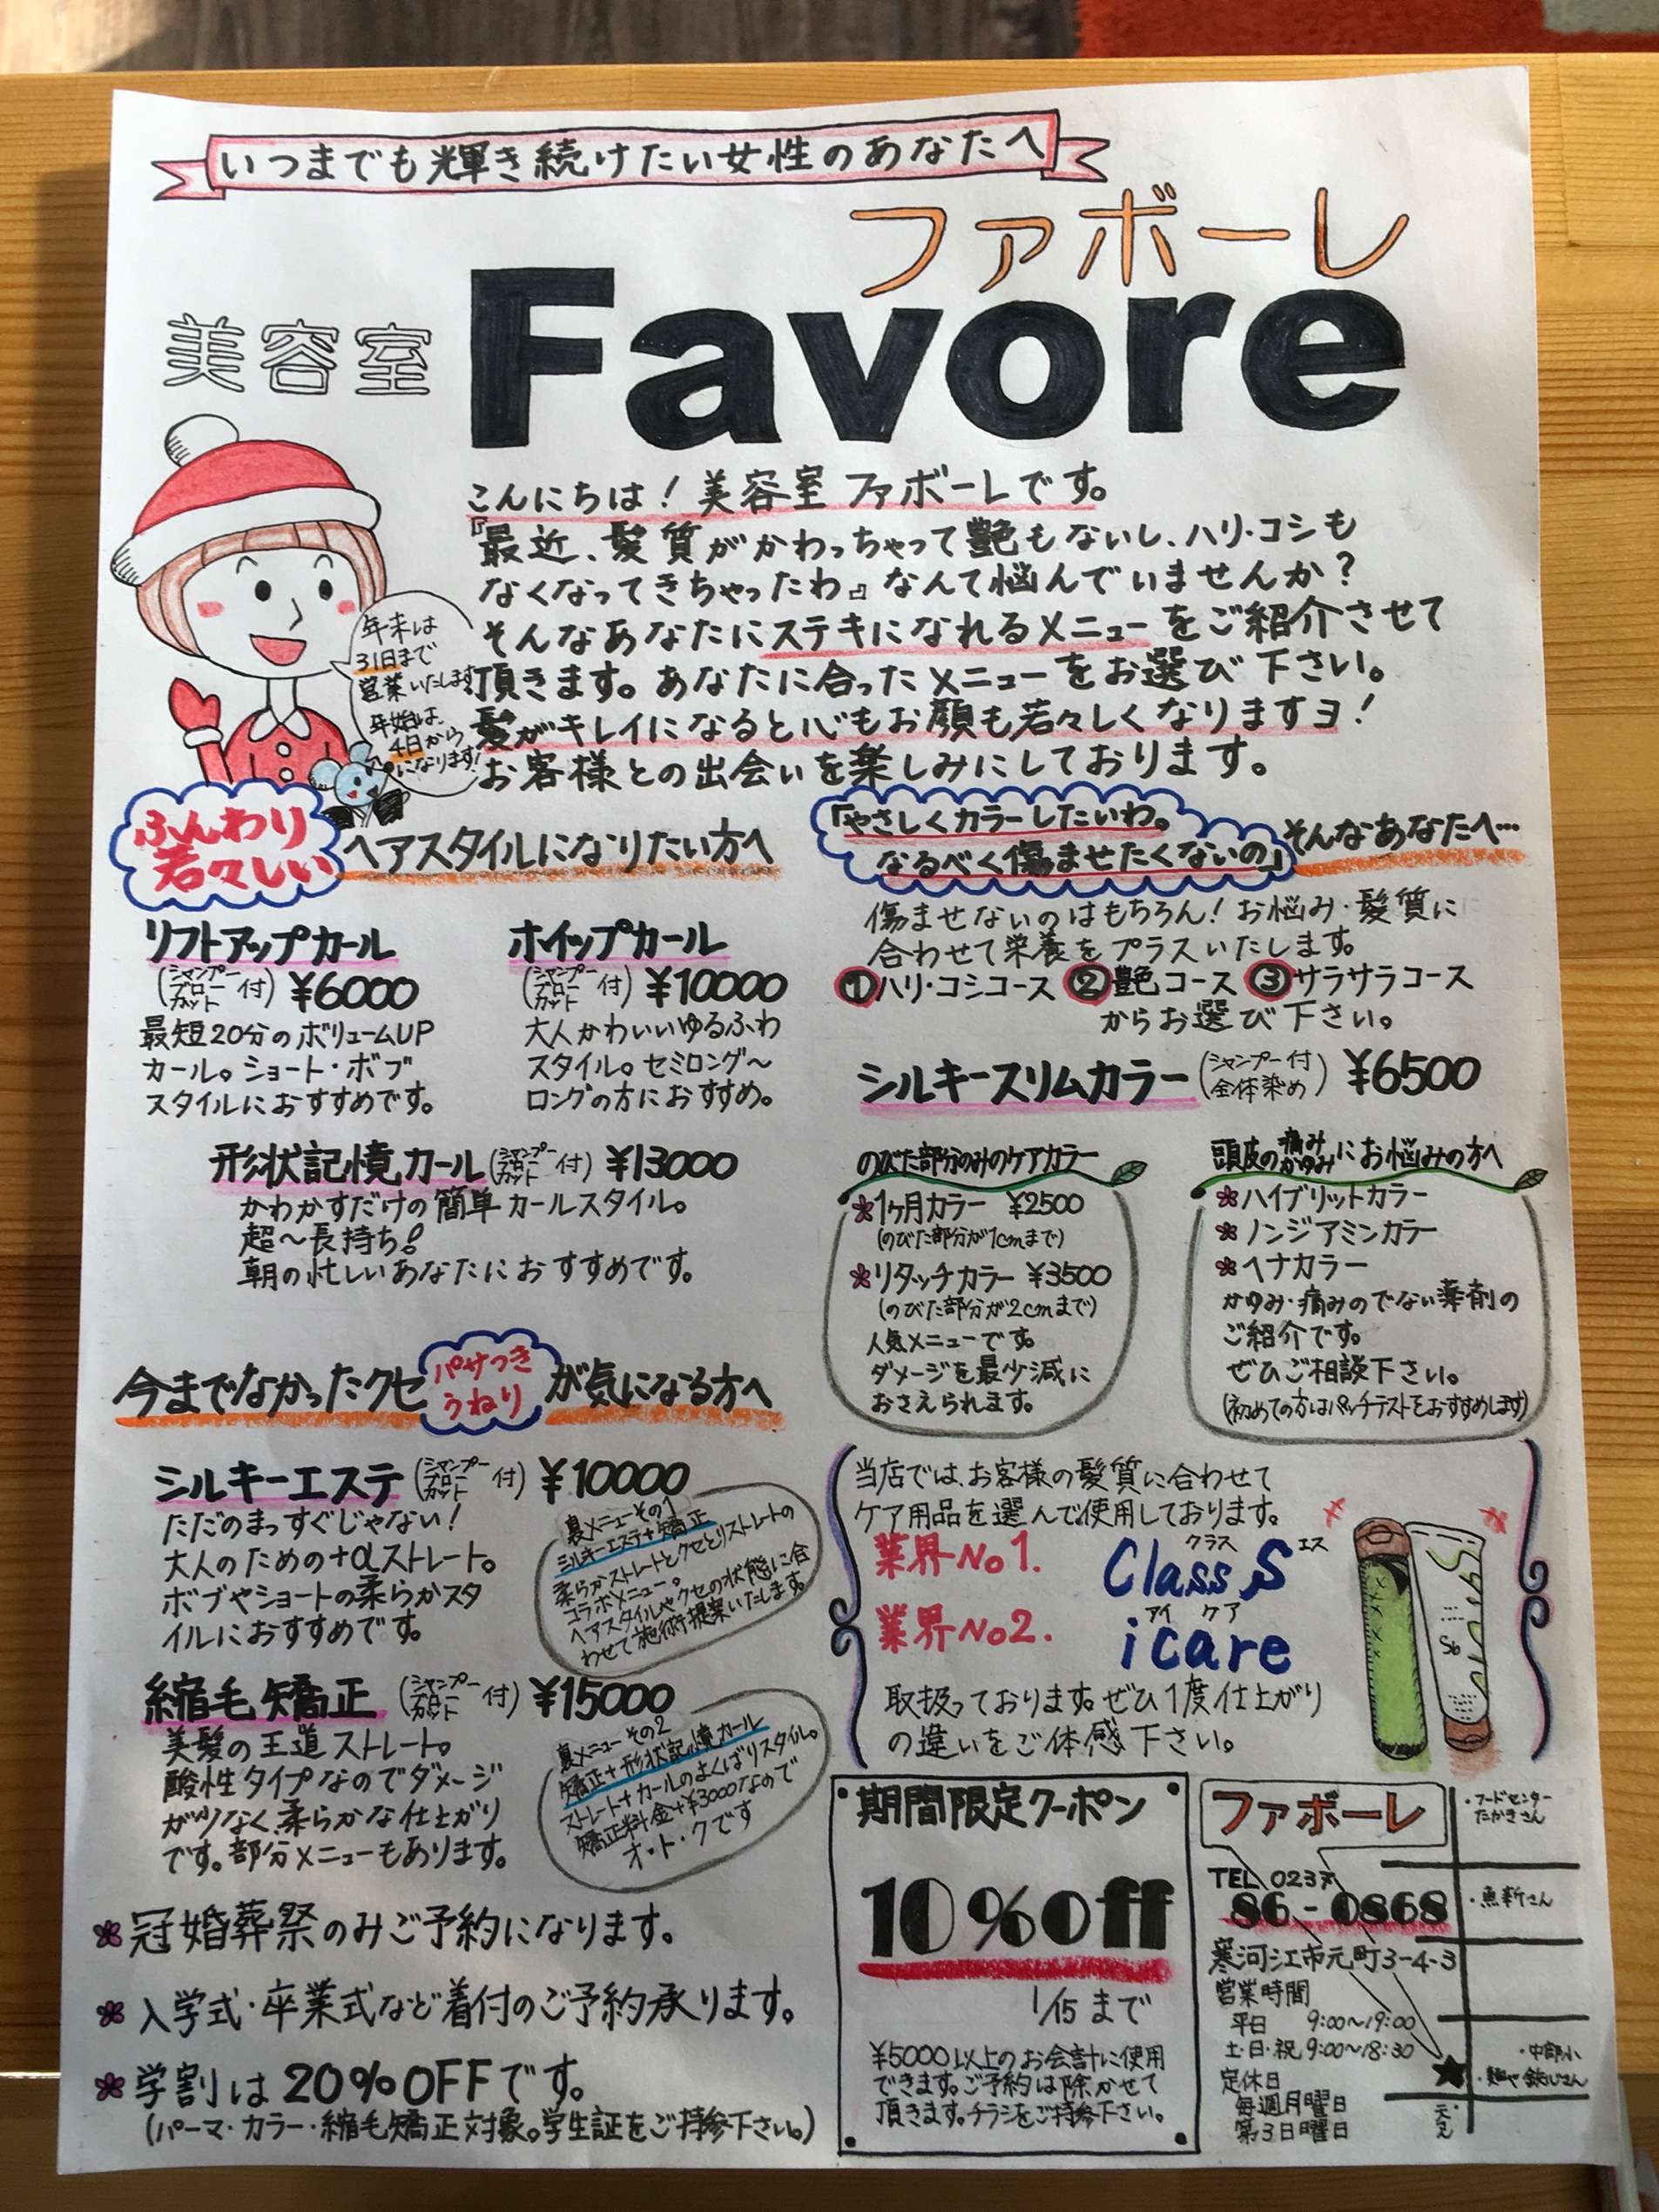 いつまでも輝き続けたい女性のあなたへ
ファボーレ
美容室
Favore
こんにちは！美容室 ファボーレです。
『最近、髪質がかわっちゃって艶もないし、ハリ・コシも
なくなってきちゃったわ』なんて悩んでいませんか？
そんなあなたにステキになれるメニューをご紹介させて
頂きます。あなたに合ったメニューをお選び下さい。
髪がキレイになると心もお顔も若々しくなりますヨ！
お客様との出会いを楽しみにしております。
年末は
31日まで
営業いたします
年始は、
4日から
になります！
ふんわり
若々しい
ヘアスタイルになりたい方へ
リフトアップカール
(シャンプー ブロー カット 付) ¥6000
最短20分のボリュームUP
カール。ショート・ボブ
スタイルにおすすめです。
ホイップカール
(シャンプー ブロー カット 付) ¥10000
大人かわいいゆるふわ
スタイル。セミロング〜
ロングの方におすすめ。
形状記憶カール (シャンプー カット 付) ¥13000
かわかすだけの簡単カールスタイル。
超〜長持ち!
朝の忙しいあなたにおすすめです。
今までなかったクセ パサつき うねり が気になる方へ
シルキーエステ (シャンプー ブロー カット 付) ¥10000
ただのまっすぐじゃない！
大人のための+αストレート。
ボブやショートの柔らかスタ
イルにおすすめです。
裏メニューその1
シルキーエステ+矯正
柔らかストレートとクセとりストレートの
コラボメニュー。
ヘアスタイルやクセの状態に合
わせて施術提案いたします。
縮毛矯正 (シャンプー カット 付) ¥15000
美髪の王道ストレート。
酸性タイプなのでダメージ
が少なく、柔らかな仕上がり
です。部分メニューもあります。
裏メニューその2
矯正+形状記憶カール
ストレート+カールのよくばりスタイル。
矯正料金+¥3000なので
オ・ト・クです
冠婚葬祭のみご予約になります。
入学式・卒業式など着付のご予約承ります。
学割は20%OFFです。
(パーマ・カラー・縮毛矯正対象。学生証をご持参下さい。)
「やさしくカラーしたいわ。
なるべく傷ませたくないの」
そんなあなたへ…
傷ませないのはもちろん！お悩み・髪質に
合わせて栄養をプラスいたします。
①ハリ・コシコース ②艶コース ③サラサラコース
からお選び下さい。
シルキースリムカラー (シャンプー付 全体染め) ¥6500
のびた部分のみのケアカラー
1ヶ月カラー ¥2500
(のびた部分が1cmまで)
リタッチカラー ¥3500
(のびた部分が2cmまで)
人気メニューです。
ダメージを最少減に
おさえられます。
頭皮の痛み かゆみにお悩みの方へ
ハイブリットカラー
ノンジアミンカラー
ヘナカラー
かゆみ・痛みのでない薬剤の
ご紹介です。
ぜひご相談下さい。
(初めての方はパッチテストをおすすめします)
当店では、お客様の髪質に合わせて
ケア用品を選んで使用しております。
業界No1.
クラス エス
Class S
業界No2.
アイ ケア
icare
取扱っております。ぜひ1度仕上がり
の違いをご体感下さい。
期間限定クーポン
10%off
1/15まで
¥5000以上のお会計に使用
できます。ご予約は除かせて
頂きます。チラシをご持参下さい。
ファボーレ
TEL 0237
86-0868
寒河江市元町3-4-3
営業時間
平日 9:00〜19:00
土・日・祝 9:00〜18:30
定休日
毎週月曜日
第3日曜日
・フードセンター
たかきさん
・魚新さん
・中部小